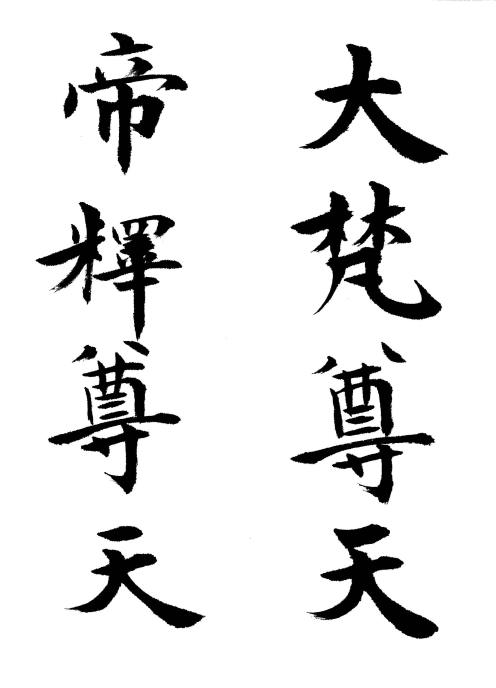 大梵尊天
帝釋尊天